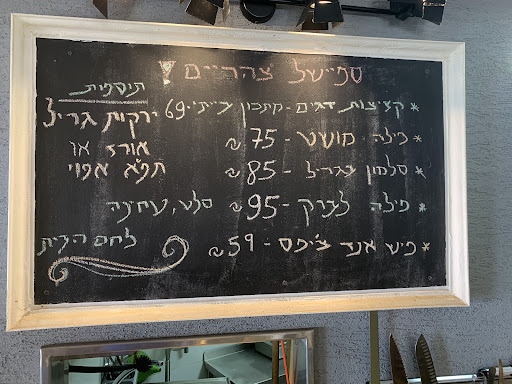 ספיישל צהריים!
* קציצות דגים - מתכון ביתי - 69
* פילה מושט - 75 ₪
* סלמון בגריל - 85 ₪
* פילה לברק - 95 ₪
* פיש אנד צ'יפס - 59 ₪
תוספות
ירקות גריל
אורז או
תפ"א אפוי
סלט, טחינה
לחם הבית